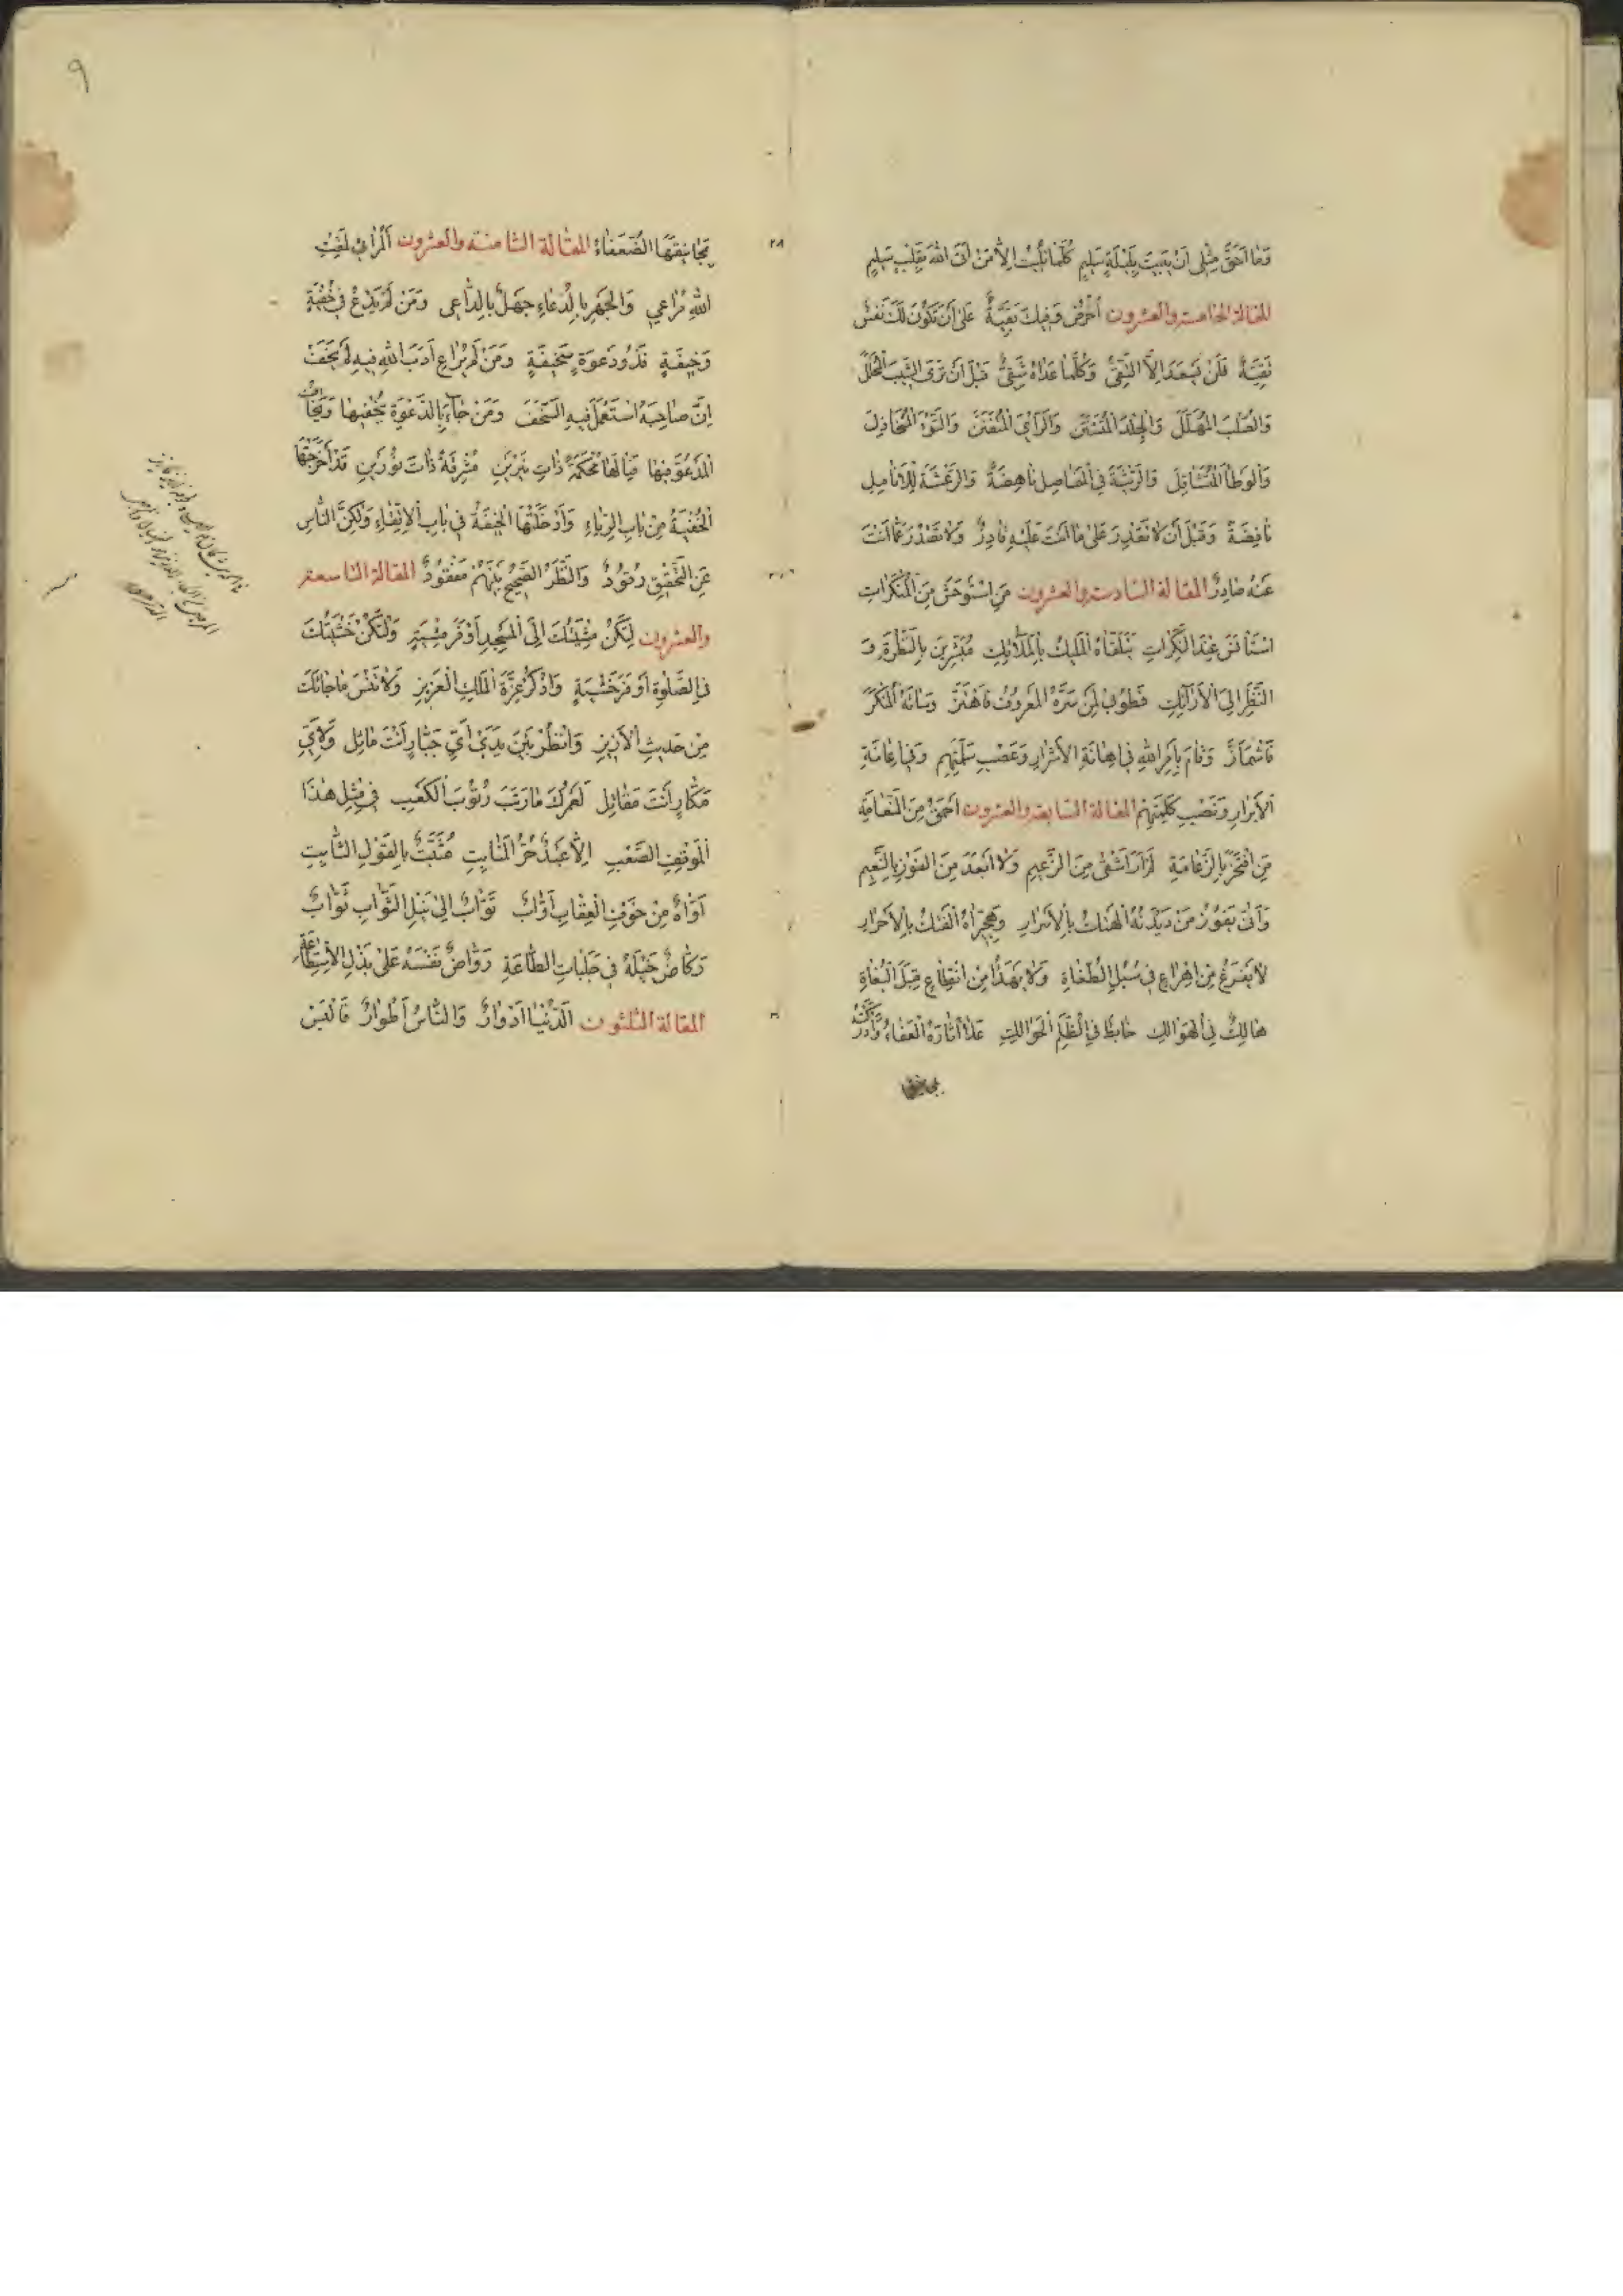 وَمَا أَحَقَّ مِثْلِي أَنْ يَبِيتَ بِلَيْلَةِ سَلِيمٍ كُلَّمَا تُلِيَتْ إِلَّا مَنْ أَتَى اللهَ بِقَلْبٍ سَلِيمٍ
المقالة الخامسة والعشرون أُحْرُصْ وَفِيكَ بَقِيَّةٌ عَلَى أَنْ تَكُونَ لَكَ نَفْسٌ
نَقِيَّةٌ فَلَنْ يَسْعَدَ إِلَّا التَّقِيُّ وَكُلُّ مَا عَدَاهُ شَقِيٌّ قَبْلَ أَنْ تَرَى الشَّيْبَ الْمُجَلِّلَ
وَالصُّلْبَ وَالْجِلْدَ الْمُتَشَنِّنَ وَالرَّأْيَ الْمُتَفَنِّنَ وَالنَّوْءَ الْمُتَخَاذِلَ
وَالْوَطْأَ الْمُتَثَاقِلَ وَالرَّثْيَةَ فِي الْمَفَاصِلِ نَاهِضَةً وَالرَّعْشَةَ لِلْأَنَامِلِ
نَافِضَةً وَقَبْلَ أَنْ لَا تَقْدِرَ عَلَى مَا أَنْتَ عَلَيْهِ قَادِرٌ وَلَا تَصْدُرَ عَمَّا أَنْتَ
عَنْهُ صَادِرٌ المقالة السادسة والعشرون مَنِ اسْتَوْحَشَ مِنَ الْمُنْكَرَاتِ
اسْتَأْنَسَ عِنْدَ السَّكَرَاتِ يَتَلَقَّاهُ الْمَلِيكُ بِالْمَلَائِكِ مُبَشِّرِينَ بِالنَّضْرَةِ وَ
النَّظَرِ إِلَى الْأَرَائِكِ فَطُوبَى لِمَنْ سَرَّهُ الْمَعْرُوفُ فَاهْتَزَّ وَسَاءَهُ الْمُنْكَرُ
فَاشْمَأَزَّ وَقَامَ بِأَمْرِ اللهِ فِي إِهَانَةِ الْأَشْرَارِ وَعَصْبِ سَلَمَتِهِمْ وَفِي إِعَانَةِ
الْأَبْرَارِ وَنَصْبِ كَلِمَتِهِمْ المقالة السابعة والعشرون أَحْمَقُ مِنَ النَّعَامَةِ
مَنِ افْتَخَرَ بِالزَّعَامَةِ لَمْ أَرَ أَشْقَى مِنَ الزَّعِيمِ وَلَا أَبْعَدَ مِنَ الْفَوْزِ بِالنَّعِيمِ
وَأَنَّى يَفُوزُ مَنْ دَيْدَنُهُ الْهَتْكُ بِالْأَسْرَارِ وَهِجِّيرَاهُ الْفَتْكُ بِالْأَحْرَارِ
لَا يَفْرُغُ مِنْ إِهْرَاعٍ فِي سُبُلِ الطُّغَاةِ وَلَا يَهْدَأُ مِنْ إِهْطَاعٍ قِبَلَ الْبُغَاةِ
هَالِكٌ فِي الْهَوَالِكِ خَابِطٌ فِي الظُّلَمِ الْحَوَالِكِ عَلَى آثَارِهِ الْعَفَاءُ وَأَدْرَكَتْ
بمجانيق
٢٨
٩
بِمَجَانِيقِهَا الضُّعَفَاءُ المقالة الثامنة والعشرون الْمُرَائِي لِمَقْتِ
اللهِ مُرَاعِي وَالْجَهْرُ بِالدُّعَاءِ جَهْلٌ بِالدَّاعِي وَمَنْ لَمْ يَدْعُ فِي خُفْيَةٍ
وَخِيفَةٍ فَذُو دَعْوَةٍ سَخِيفَةٍ وَمَنْ لَمْ يُرَاعِ أَدَبَ اللهِ فِيهِ لَمْ يَخَفْ
إِنَّ صَاحِبَهُ اسْتَعْمَلَ فِيهِ السُّخْفَ وَمَنْ جَاءَ بِالدَّعْوَةِ يُخْفِيهَا وَيَخَافُ
الْمَدْعُوَّ فِيهَا فَيَا لَهَا مُحْكَمَةً ذَاتَ نِيرَيْنِ مُشْرِقَةً ذَاتَ نُورَيْنِ قَدْ أَخْرَجَتْهَا
الْخُفْيَةُ مِنْ بَابِ الرِّيَاءِ وَأَدْخَلَتْهَا الْخِيفَةُ فِي بَابِ الْاتِّقَاءِ وَلَكِنَّ النَّاسَ
عَنِ التَّحْقِيقِ رُقُودٌ وَالنَّظَرُ الصَّحِيحُ بَيْنَهُمْ مَفْقُودٌ المقالة التاسعة
والعشرون لِتَكُنْ مِشْيَتُكَ إِلَى الْمَسْجِدِ أَوْقَرَ مِشْيَةٍ وَلْتَكُنْ خَشْيَتُكَ
فِي الصَّلٰوةِ أَوْفَرَ خَشْيَةٍ وَاذْكُرْ عِزَّةَ الْمَلِكِ الْعَزِيزِ وَلَا تَنْسَ مَا جَاءَكَ
مِنْ حَدِيثِ الْأَزِيزِ وَانْظُرْ بَيْنَ يَدَيْ أَيِّ جَبَّارٍ أَنْتَ مَاثِلٌ وَلِأَيِّ
مَكَّارٍ أَنْتَ مُقَاتِلٌ لَعَمْرُكَ مَا رَتَبَ رُتُوبَ الْكَعْبِ فِي مِثْلِ هٰذَا
الْمَوْقِفِ الصَّعْبِ إِلَّا عَبْدٌ حُرُّ الْمَنَابِتِ مُثَبَّتٌ بِالْقَوْلِ الثَّابِتِ
أَوَّاهٌ مِنْ خَوْفِ الْعِقَابِ أَوَّابٌ تَوَّابٌ إِلَى نَيْلِ الثَّوَابِ ثَوَّابٌ
رَكَّاضٌ خَيْلَهُ فِي حَلَبَاتِ الطَّاعَةِ رَوَّاضٌ نَفْسَهُ عَلَى بَذْلِ الْاسْتِطَاعَةِ
المقالة الثلثون الدُّنْيَا أَدْوَارٌ وَالنَّاسُ أَطْوَارٌ فَالْبَسْ